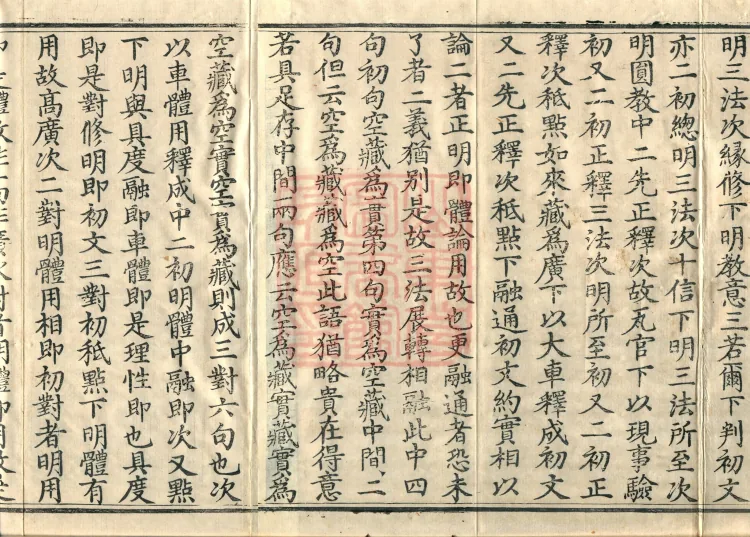 明三法次緣修下明教意三若爾下判初文
亦二初總明三法次十信下明三法所至次
明圓教中二先正釋次故丸官下以現事驗
初又二初正釋三法次明所至初又二初正
釋次秪點如來藏為廣下以大車釋成初文
又二先正釋次秪點下融通初文約實相以
論二者正明即體論用故也更融通者恐未
了者二義猶別是故三法展轉相融此中四
句初句空藏為實第四句實為空藏中間二
句但云空為藏藏為空此語猶略貴在得意
若具足存中間兩句應云空為藏實藏實為
空藏為空實空實為藏則成三對六句也次
以車體用釋成中二初明體中融即次又點
下明與具度融即車體即是理性即也具度
即是對修明即初文三對初秪點下明體有
用故高廣次二對明體用相即初對者明用